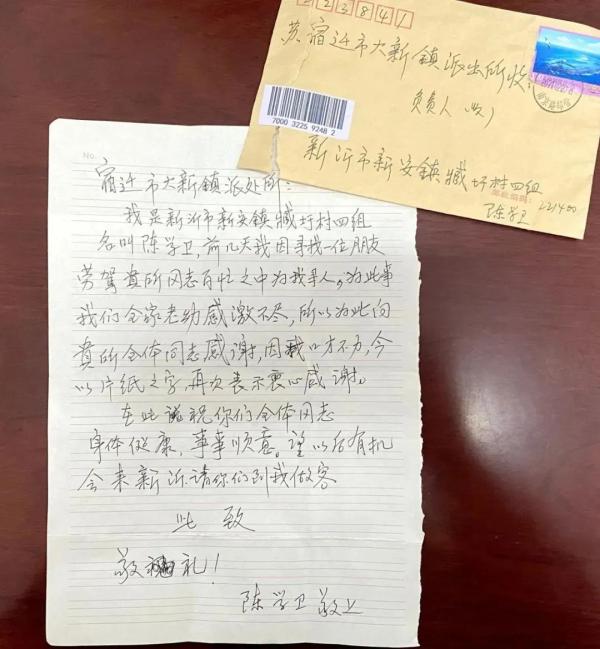 223841
苏宿迁市大新镇派出所收:
负责人(收)
7000 3225 9248 2
新沂市新安镇臧圩村四组
陈学卫 221400
No.
宿迁市大新镇派处所:
我是新沂市新安镇臧圩村四组
名叫陈学卫,前几天我因寻找一位朋友
劳驾贵所同志百忙之中为我寻人。为此事
我们全家老幼感激不尽,所以为此向
贵所全体同志感谢,因我口才不力,今
以片纸之字,再次表示衷心感谢。
在此祝你们全体同志
身体健康,事事顺意。望以后有机
会来新沂请你们到我做客
此致
敬礼!
陈学卫敬上